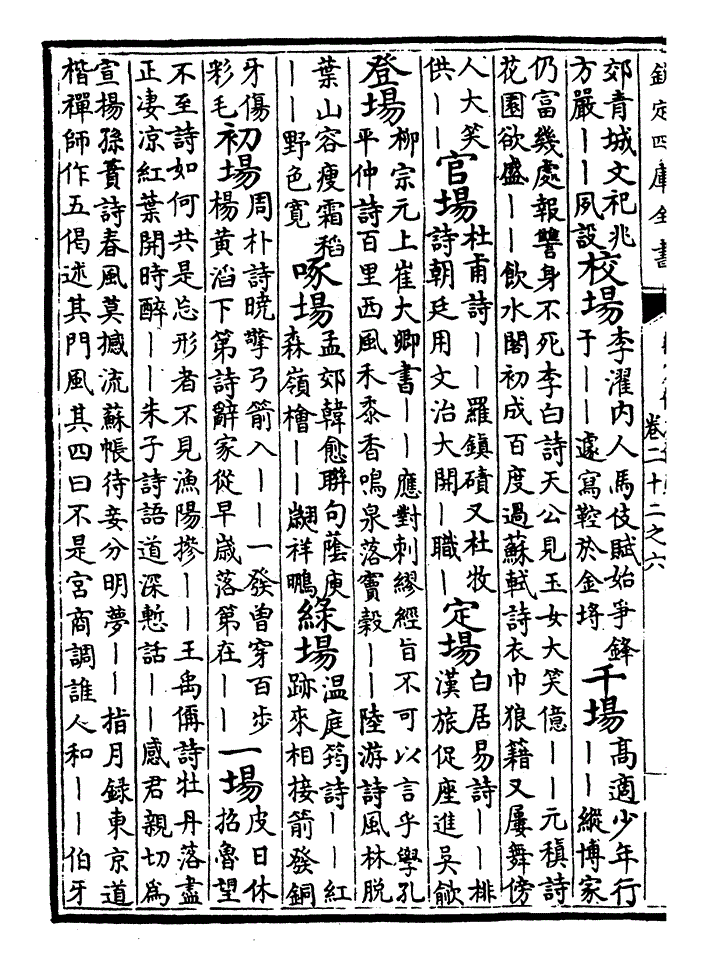 欽定四庫全書
卷二十二之六
郊青城文祀兆
方嚴——夙設
校場
李濯内人馬伎賦始爭鋒
于——遽寫鞚於金埓
千場
高適少年行
——縱博家
仍富幾處報讐身不死李白詩天公見玉女大笑億——元稹詩
花園欲盛——飲水閣初成百度過蘇軾詩衣巾狼藉又屢舞傍
人大笑
供——
官場
杜甫詩——羅鎮磧又杜牧
詩朝廷用文治大開—職—
定場
白居易詩——排
漢旅促座進吳歈
登場
柳宗元上崔大卿書——應對刺繆經旨不可以言乎學孔
平仲詩百里西風禾黍香鳴泉落竇穀——陸游詩風林脱
葉山容瘦霜稻
——野色寛
啄場
孟郊韓愈聯句蔭庾
森嶺檜——翽祥鵬
綠場
温庭筠詩——紅
跡來相接箭發銅
牙傷
彩毛
初場
周朴詩曉擎弓箭入——一發曽穿百步
楊黄滔下第詩辭家從早嵗落第在——
一場
皮日休
招魯望
不至詩如何共是忘形者不見漁陽摻——王禹偁詩牡丹落盡
正凄凉紅葉開時醉——朱子詩語道深慙話——感君親切為
宣揚孫蕡詩春風莫撼流蘇帳待妾分明夢——指月録東京道
楷禪師作五偈述其門風其四曰不是宮商調誰人和——伯牙